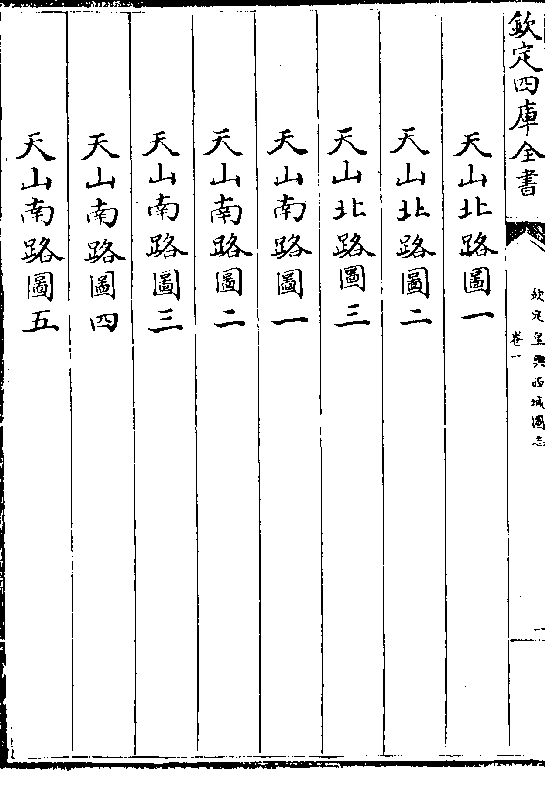 欽定四庫全書
欽定皇輿西域圖志
卷一
一
天山北路圖一
天山北路圖二
天山北路圖三
天山南路圖一
天山南路圖二
天山南路圖三
天山南路圖四
天山南路圖五